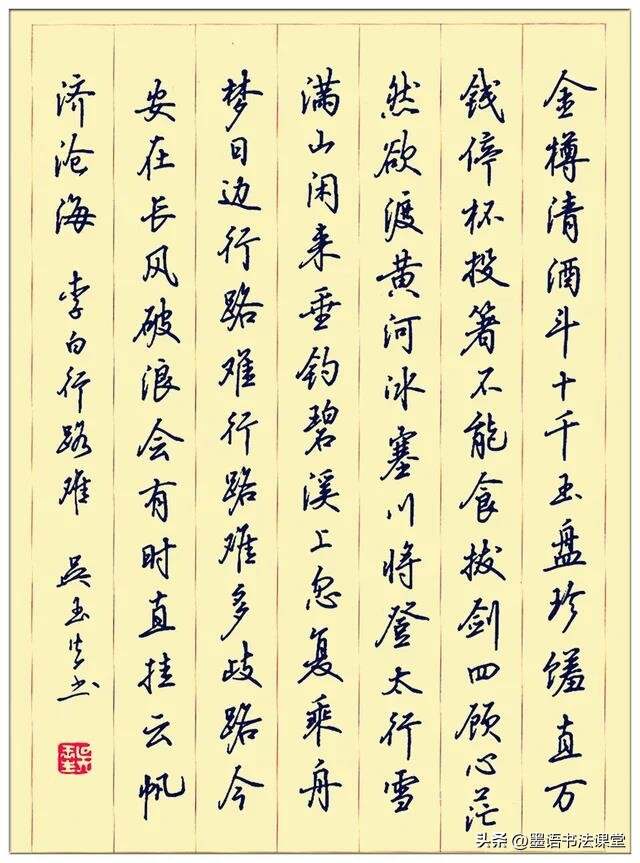 金樽清酒斗十千玉盘珍馐直万
钱停杯投箸不能食拔剑四顾心茫
然欲渡黄河冰塞川将登太行雪
满山闲来垂钓碧溪上忽复乘舟
梦日边行路难行路难多歧路今
安在长风破浪会有时直挂云帆
济沧海 李白行路难 吴玉生书
头条 @墨语书法课堂